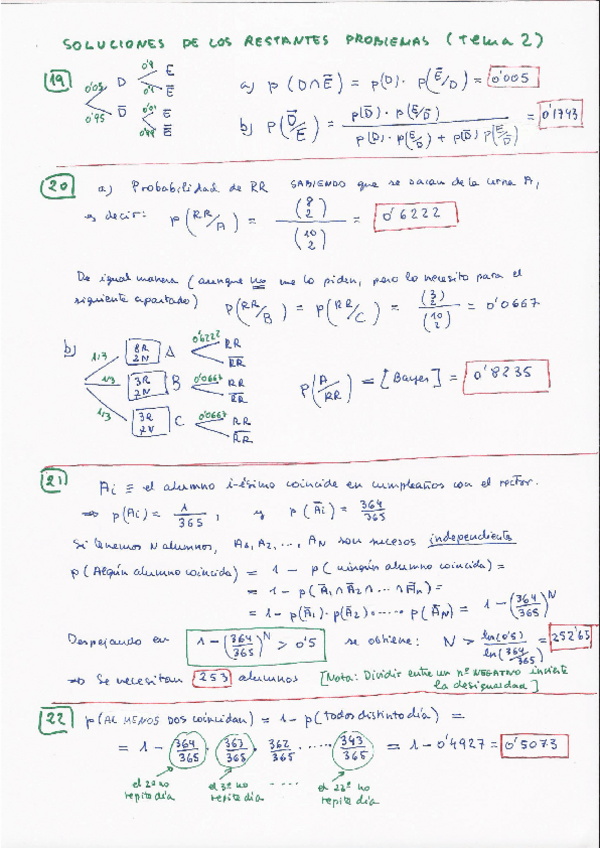 SOLUCIONES DE LOS RESTANTES PROBLEMAS (Tema 2)
19
0'05 D 0'9 E
0'1 Ē
0'95 D̄ 0'01 E
0'99 Ē
a) p(D∩Ē) = p(D)· p(Ē/D) = 0'005
b) p(D̄/E) = p(D̄)· p(E/D̄) / p(D)· p(E/D) + p(D̄) p(E/D̄) = 0'1743
20 a) Probabilidad de RR SABIENDO que se sacan de la urna A,
es decir: p(RR/A) = (8 2) / (10 2) = 0'6222
De igual manera (aunque no me lo piden, pero lo necesito para el
siguiente apartado) p(RR/B) = p(RR/C) = (3 2) / (10 2) = 0'0667
b) 1/3 8R 2N A 0'6222 RR
R̄R̄
1/3 3R 7N B 0'0667 RR
R̄R̄
1/3 3R 7N C 0'0667 RR
R̄R̄
p(A/RR) = [Bayes] = 0'8235
21 Ai ≡ el alumno i-ésimo coincide en cumpleaños con el rector.
⇒ p(Ai) = 1/365, y p(Āi) = 364/365
Si tenemos N alumnos, A1, A2, ..., AN son sucesos independientes
p(Algún alumno coincida) = 1 - p(ningún alumno coincida) =
= 1 - p(Ā1 ∩ Ā2 ∩ ... ∩ Ān) =
= 1 - p(Ā1)· p(Ā2)· ..... p(ĀN) = 1 - (364/365)^N
Despejando en 1 - (364/365)^N > 0'5 se obtiene: N > ln(0'5) / ln(364/365) = 252'65
⇒ Se necesitan 253 alumnos [Nota: Dividir entre un nº NEGATIVO invierte
la desigualdad]
22 p(AL MENOS DOS coincidan) = 1 - p(Todos distinto día) =
= 1 - 364/365 · 363/365 · 362/365 ..... 343/365 = 1 - 0'4927 = 0'5073
el 2º no repite día
el 3º no repite día
.....
el 23º no repite día